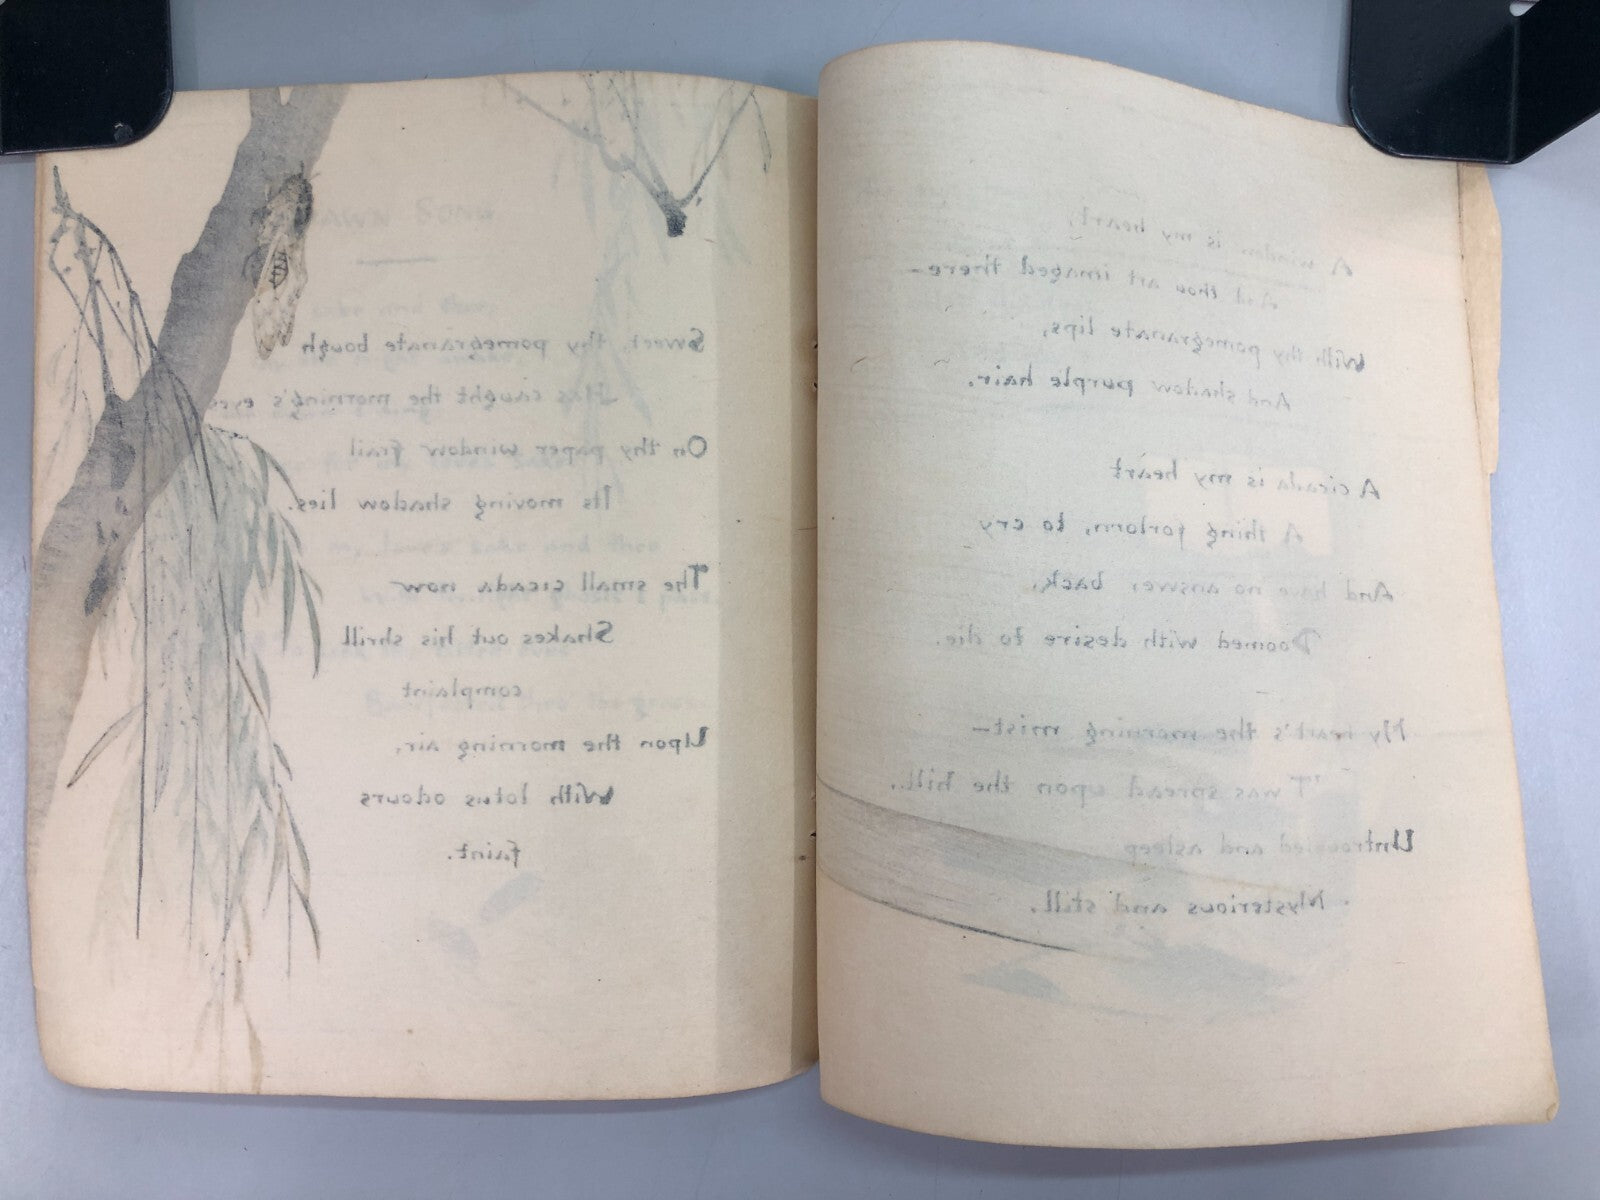 DAWN SONG
Sweet, thy pomegranate bough
Has caught the morning's eyes
On thy paper window frail
Its moving shadow lies.
my love's sake and thee
The small cicada now
Shakes out his shrill
complaint
Upon the morning air,
With lotus odours
faint.
A window is my heart,
And thou art imaged there—
With thy pomegranate lips,
And shadow purple hair.
A cicada is my heart
A thing forlorn, to cry
And have no answer back,
Doomed with desire to die.
My heart's the morning mist—
'Twas spread upon the hill,
Untroubled and asleep
Mysterious and still.